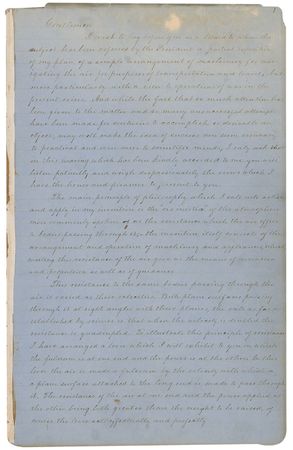 Gentlemen
I wish to lay before you as a Board to whom the
subject has been referred by the President a partial
of my plan of a simple arrangement of machinery for navi-
gating the air, for purposes of transportation and travel, but
more particularly with a view to operations of war in the
present crisis. And while the fact that so much attention has
been given to the matter and so many unsuccessful attempts
have been made for centuries to accomplish so desirable an
object, may well make the idea of success seem visionary
to practical and even more to scientific minds, I only ask
in this hearing which has been kindly accorded to me you will
listen patiently and weigh dispassionately the views which I
have the honor and pleasure to present to you.
The main principle of philosophy which I call into action
and apply in my invention is the "vis inertia" of the atmosphere
more commonly spoken of as the resistance which the air offers
to bodies passing through it, the invention itself consists of the
arrangement and operation of machinery and appliances which
making the resistance of the air give us the means of
and propulsion as well as of guidance.
This resistance to the same bodies passing through the
air is varied as their velocities. With plane surfaces passing
through it at right angles with their planes, the rule as far as
established by science is that when the velocity is doubled the
resistance is quadrupled. To illustrate this principle of resistance
I have arranged a lever which I will exhibit to you in which
the fulcrum is at one end and the power at the other. In this
lever the air is made a fulcrum by the velocity with which
a plane surface attached to the long end is made to pass through
it. The resistance of the air at one end and the power applied at
the other being both greater than the weight to be raised, of
course the lever acts effectually and perfectly